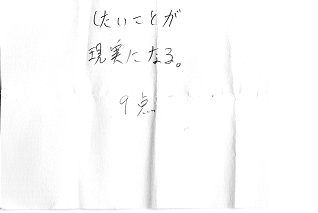 したいことが
現実になる。
9点